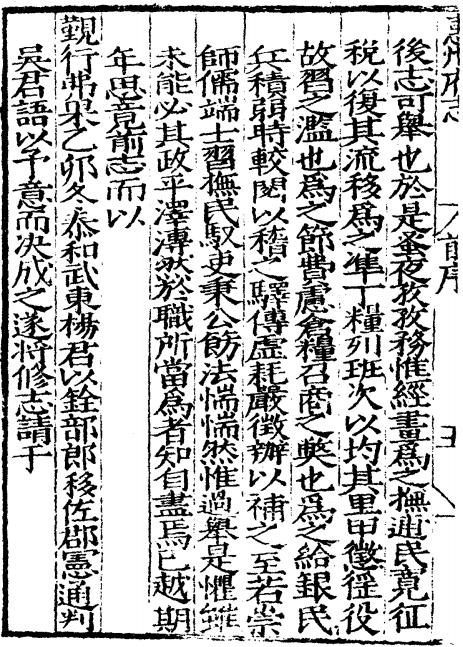 惠州府志 前序 五
後志可舉也於是蚤夜孜孜務惟經畫爲之撫逋民寬征
稅以復其流移爲之準丁糧列班次以均其里甲徵徭役
故習之濫也爲之節費慮倉糧召商之獘也爲之給銀民
兵積弱時較閱以稽之驛傳虛耗嚴徵辦以補之至若崇
師儒端士習撫民馭吏秉公飭法惴惴然惟過舉是懼雖
未能必其政平澤溥然於職所當爲者知自盡焉已越期
年思竟前志而以
覲行弗果乙卯冬泰和武東楊君以銓部郎移佐郡憲通判
吳君語以予意而决成之遂將修志請于